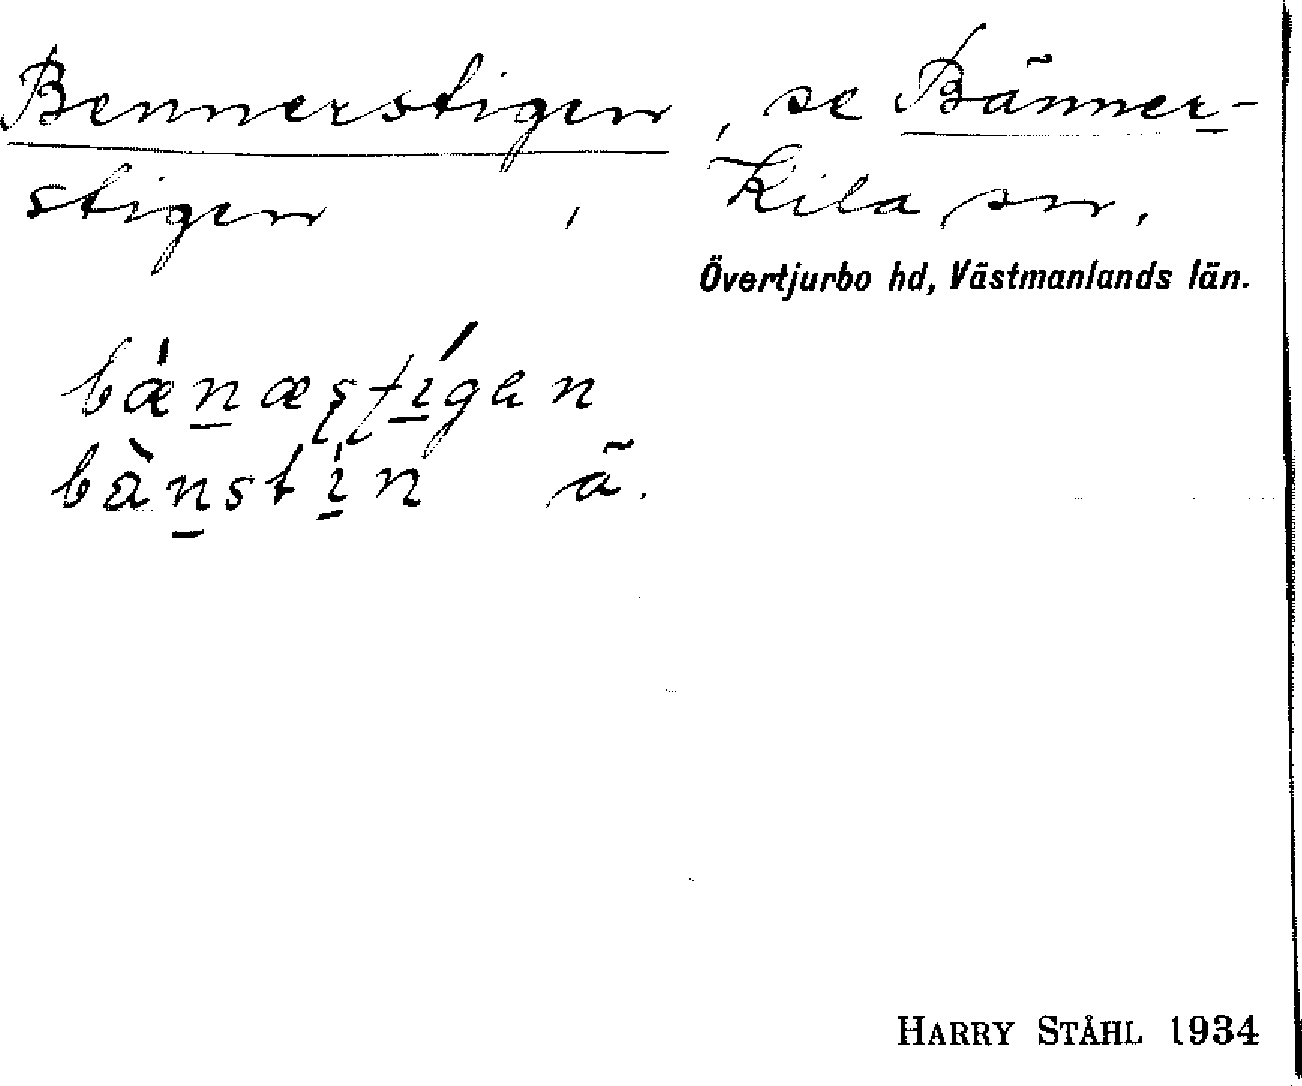 Bennerstigen, se Bänner-
stigen, Kila sn,
Övertjurbo hd, Västmanlands län.
bæ̀næştígen
bànstìn ä.
HARRY STÅHL 1934